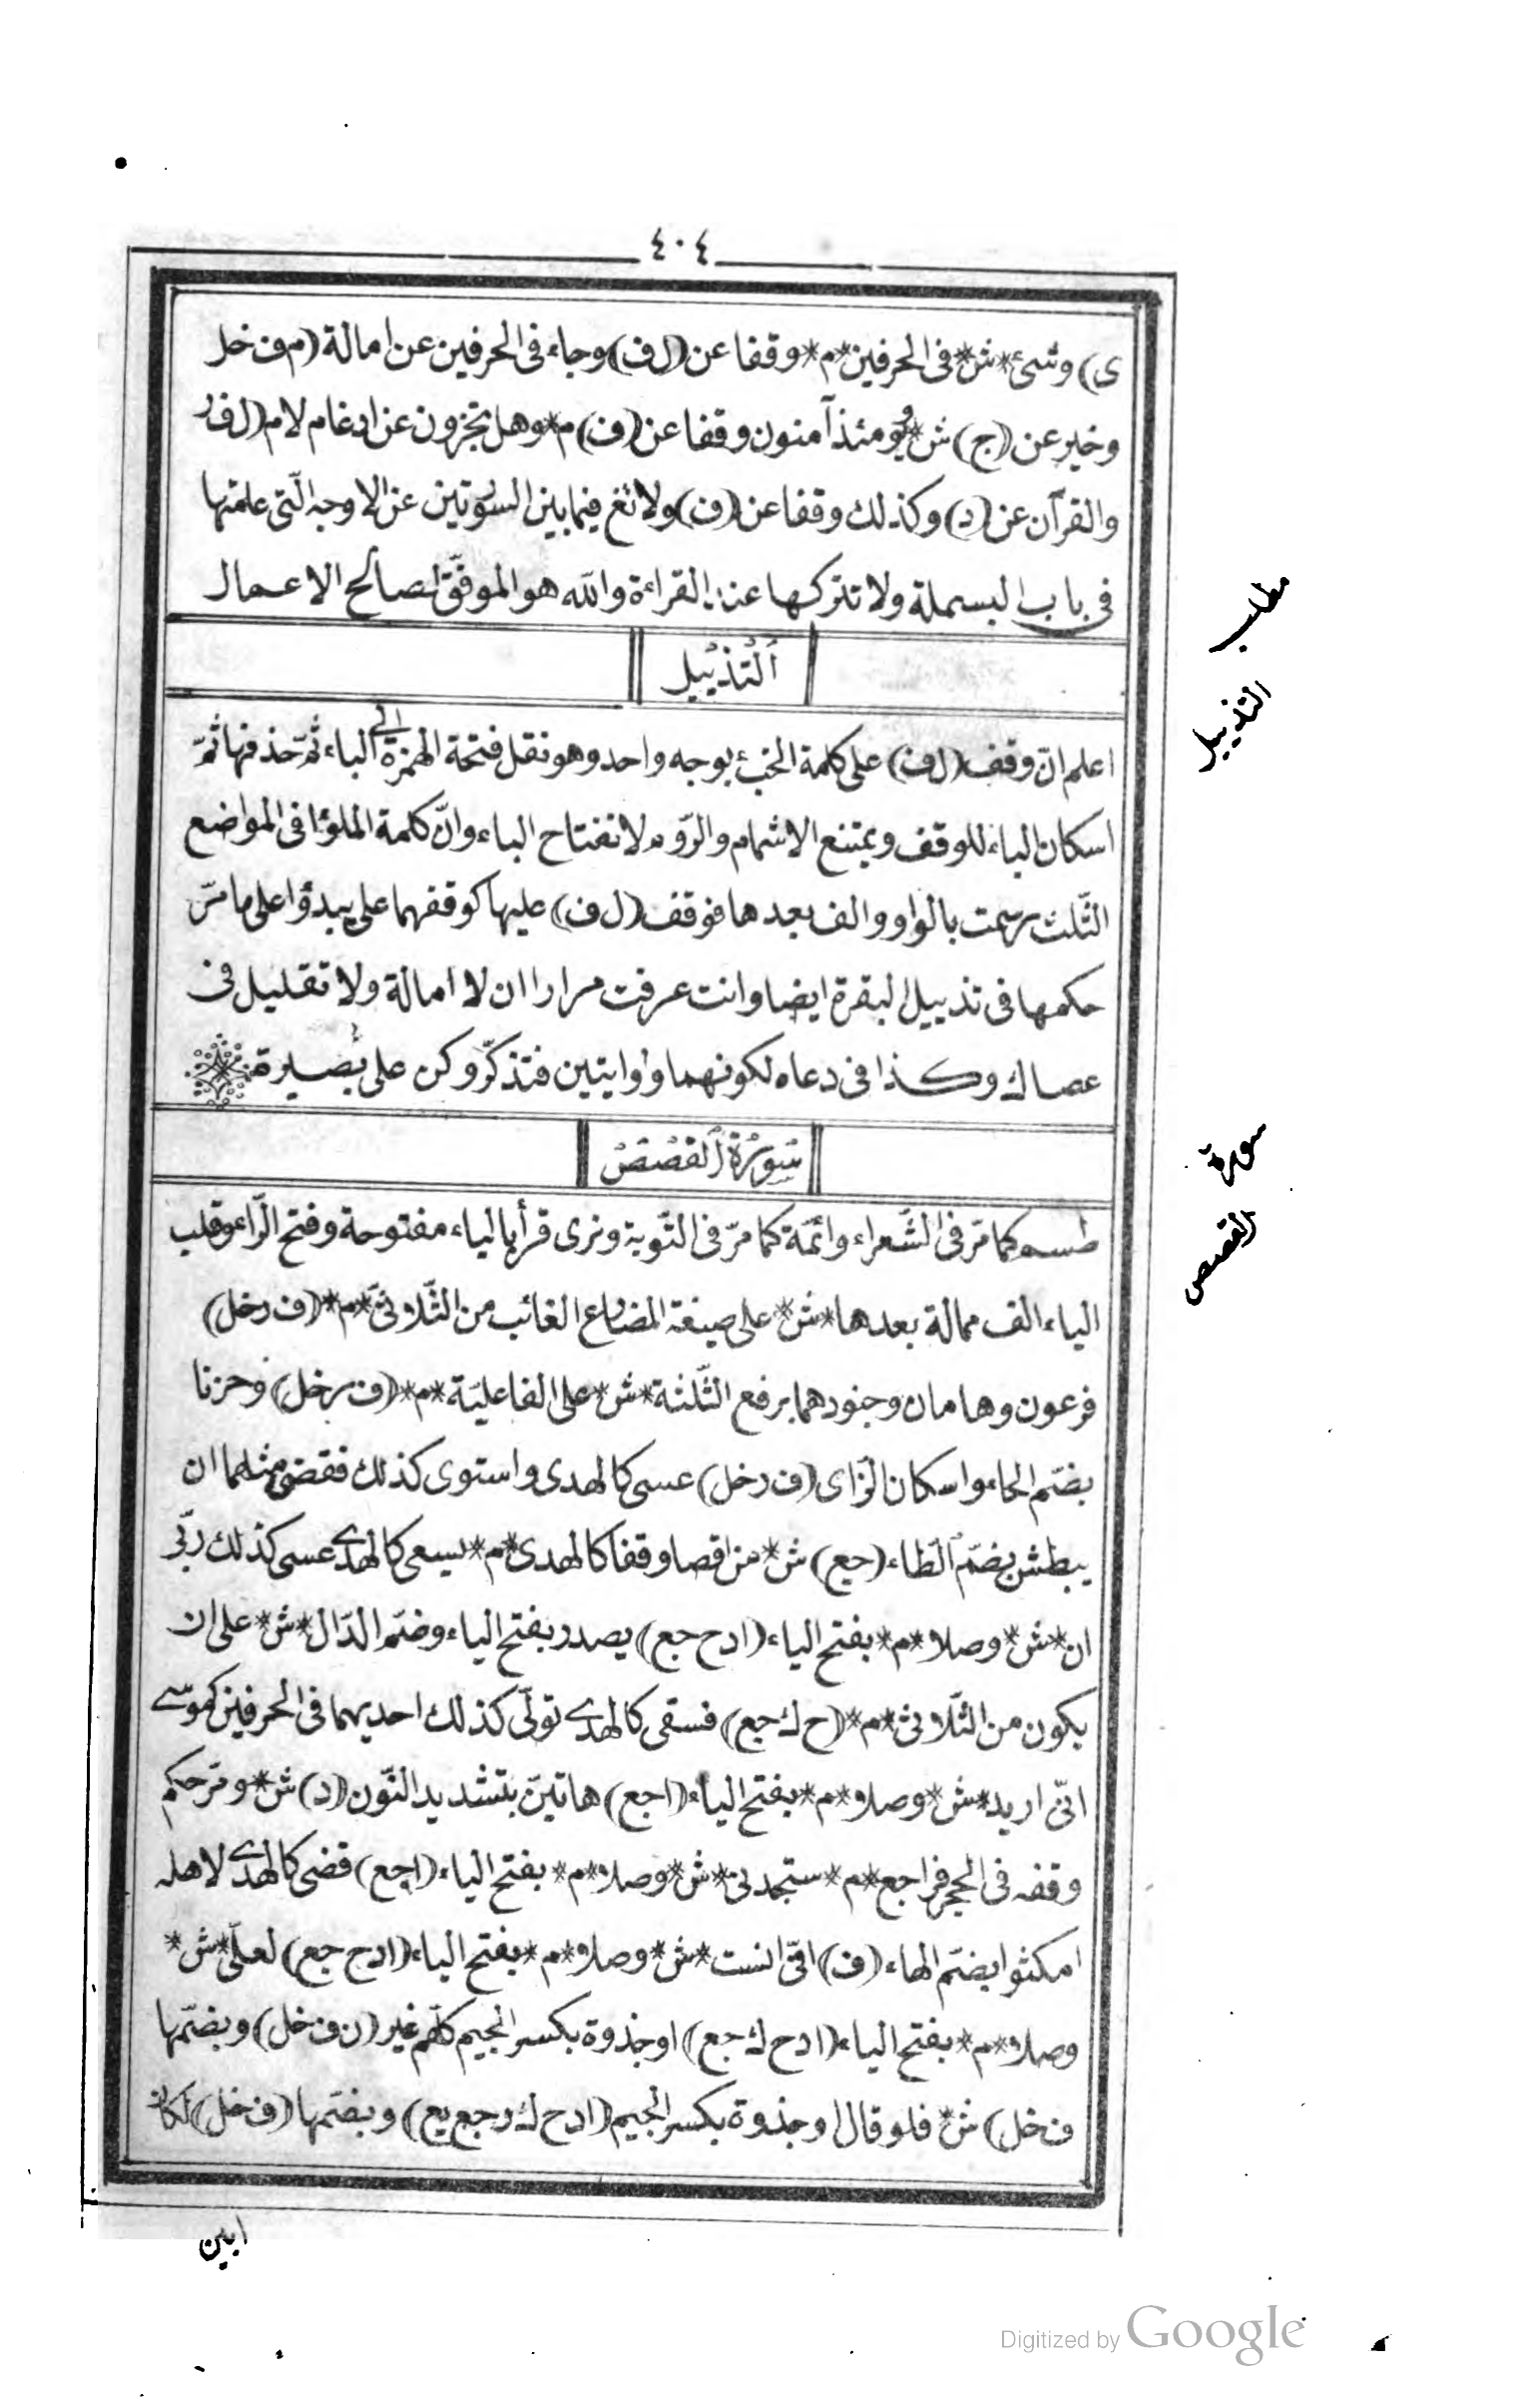 ٤٠٤
ى) وشئ*ش*فى الحرفين*م*وقفا عن (ل ف) وجاء فى الحرفين عن امالة (م ف خل
وخير عن (ج) ش*يومئذ آمنون وقفا عن (ف) م*وهل تجزون عن ادغام لام (ل ف ر
والقرآن عن (د) وكذلك وقفا عن (ف) ولا تغ فيما بين السورتين عن الاوجه الّتى علمتها
فى باب البسملة ولا تتركها عند القراءة والله هو الموفّق لصالح الاعمال
اَلتَّذْيِيْل
اعلم انّ وقف (ل ف) على كلمة الخبء بوجه واحد وهو نقل فتحة الهمزة الى الباء ثمّ حذفها ثمّ
اسكان الباء للوقف ويمتنع الاشمام والرّوم لانفتاح الباء وانّ كلمة الملؤا فى المواضع
الثّلث رسمت بالواو والف بعدها فوقف (ل ف) عليها كوقفهما على يبدؤا على ما مرّ
حكمها فى تذييل البقرة ايضا وانت عرفت مرارا ان لا امالة ولا تقليل فى
عصاك وكذا فى دعاه لكونهما واوايتين فتذكّر وكن على بصيرة
سُورَةُ الْقَصَصْ
طسم كما مرّ فى الشّعراء وائمّة كما مرّ فى التّوبة ونرى قرأ بالياء مفتوحة وفتح الرّاء وقلب
الياء الف ممالة بعدها*ش*على صيغة المضارع الغائب من الثّلاثىّ*م*(ف رخل)
فرعون وهامان وجنودهما برفع الثّلثة*ش*على الفاعليّة*م*(ف رخل) وحزنا
بضّم الحاء واسكان الزّاى (ف رخل) عسى كالهدى واستوى كذلك فقضى مثلهما ان
يبطش بضمّ الطّاء (جع) ش*من اقصا وقفا كالهدى*م*يسعى كالهدى عسى كذلك ربّى
ان*ش*وصلا*م*بفتح الياء (ادح جع) يصدر بفتح الياء وضمّ الدّال*ش*على ان
يكون من الثّلاثى*م*(ح ك جع) فسقى كالهدى تولّى كذلك احديهما فى الحرفين كموسى
انّى اريد*ش*وصلا*م*بفتح الياء (اجع) هاتينّ بتشديد النّون (د) ش*ومرّ حكم
وقفه فى الحجر فراجع*م*ستجدنى*ش*وصلا*م*بفتح الياء (اجع) قضى كالهدى لاهله
امكثوا بضمّ الهاء (ف) انّى انست*ش*وصلا*م*بفتح الياء (ادح جع) لعلّى*ش*
وصلا*م*بفتح الياء (ادح ك جع) او جذوة بكسر الجيم كلّهم غير (ن ف خل) وبضمّها
ف خل) ش*فلو قال او جذوة بكسر الجيم (ادح ك ر جع يع) وبضمّها (ف خل) لكان
ابين
مطلب
التذييل
سورة
القصص
Digitized by Google